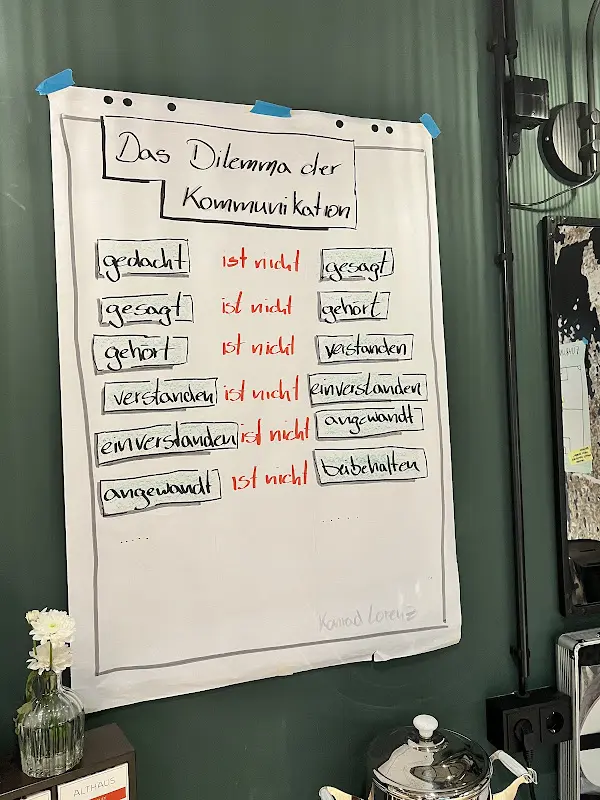 Das Dilemma der
Kommunikation
gedacht ist nicht gesagt
gesagt ist nicht gehört
gehört ist nicht verstanden
verstanden ist nicht einverstanden
einverstanden ist nicht angewandt
angewandt ist nicht beibehalten
.....
.....
Konrad Lorenz
ALTHAUS